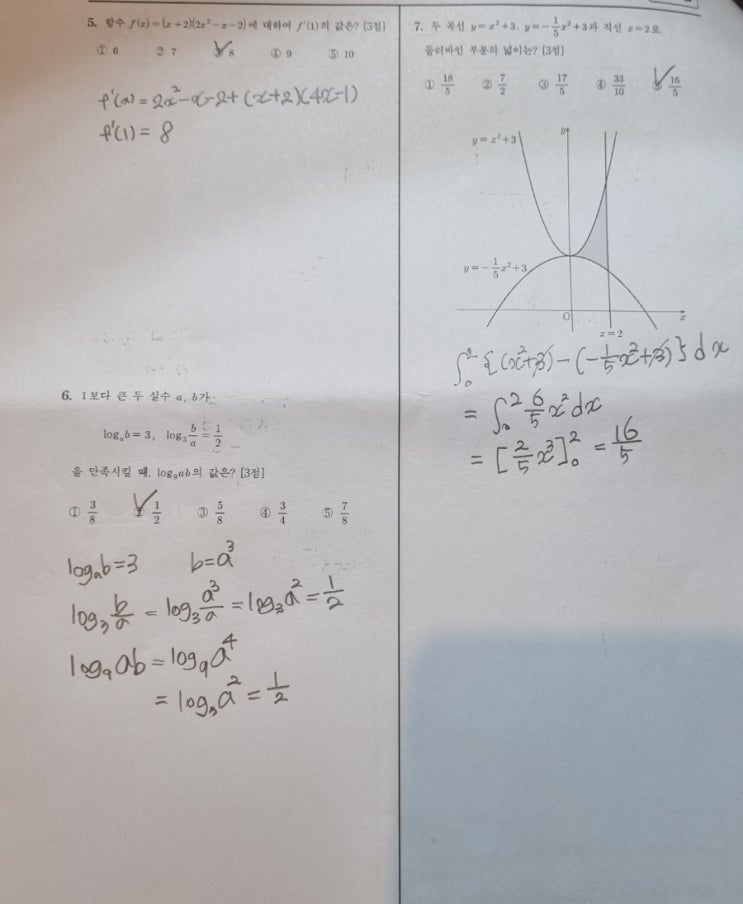 5. 함수 f(x)=(x+2)(2x²-x-2)에 대하여 f'(1)의 값은? [3점]
① 6 ② 7 ③ 8 ④ 9 ⑤ 10
f'(x) = 2x²-x-2+(x+2)(4x-1)
f'(1) = 8
6. 1보다 큰 두 실수 a, b가
logₐb=3, log₃ b/a = 1/2
을 만족시킬 때, log₉ab의 값은? [3점]
① 3/8 ② 1/2 ③ 5/8 ④ 3/4 ⑤ 7/8
logₐb=3 b=a³
log₃ b/a = log₃ a³/a = log₃a² = 1/2
log₉ab = log₉a⁴
= log₃a² = 1/2
7. 두 곡선 y=x²+3, y=-1/5x²+3과 직선 x=2로
둘러싸인 부분의 넓이는? [3점]
① 18/5 ② 7/2 ③ 17/5 ④ 33/10 ⑤ 16/5
y=x²+3
y
y=-1/5x²+3
O
x
x=2
∫₀² {(x²+3)-(-1/5x²+3)}dx
= ∫₀² 6/5 x² dx
= [2/5 x³]₀² = 16/5